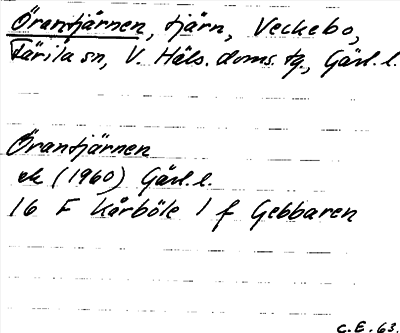 Örantjärnen, tjärn, Veckebo,
Färila sn, V. Häls. doms. tg., Gävl. l.
Örantjärnen
ek (1960) Gävl. l.
16 F Kårböle 1 f Gebbaren
C.E. 63.